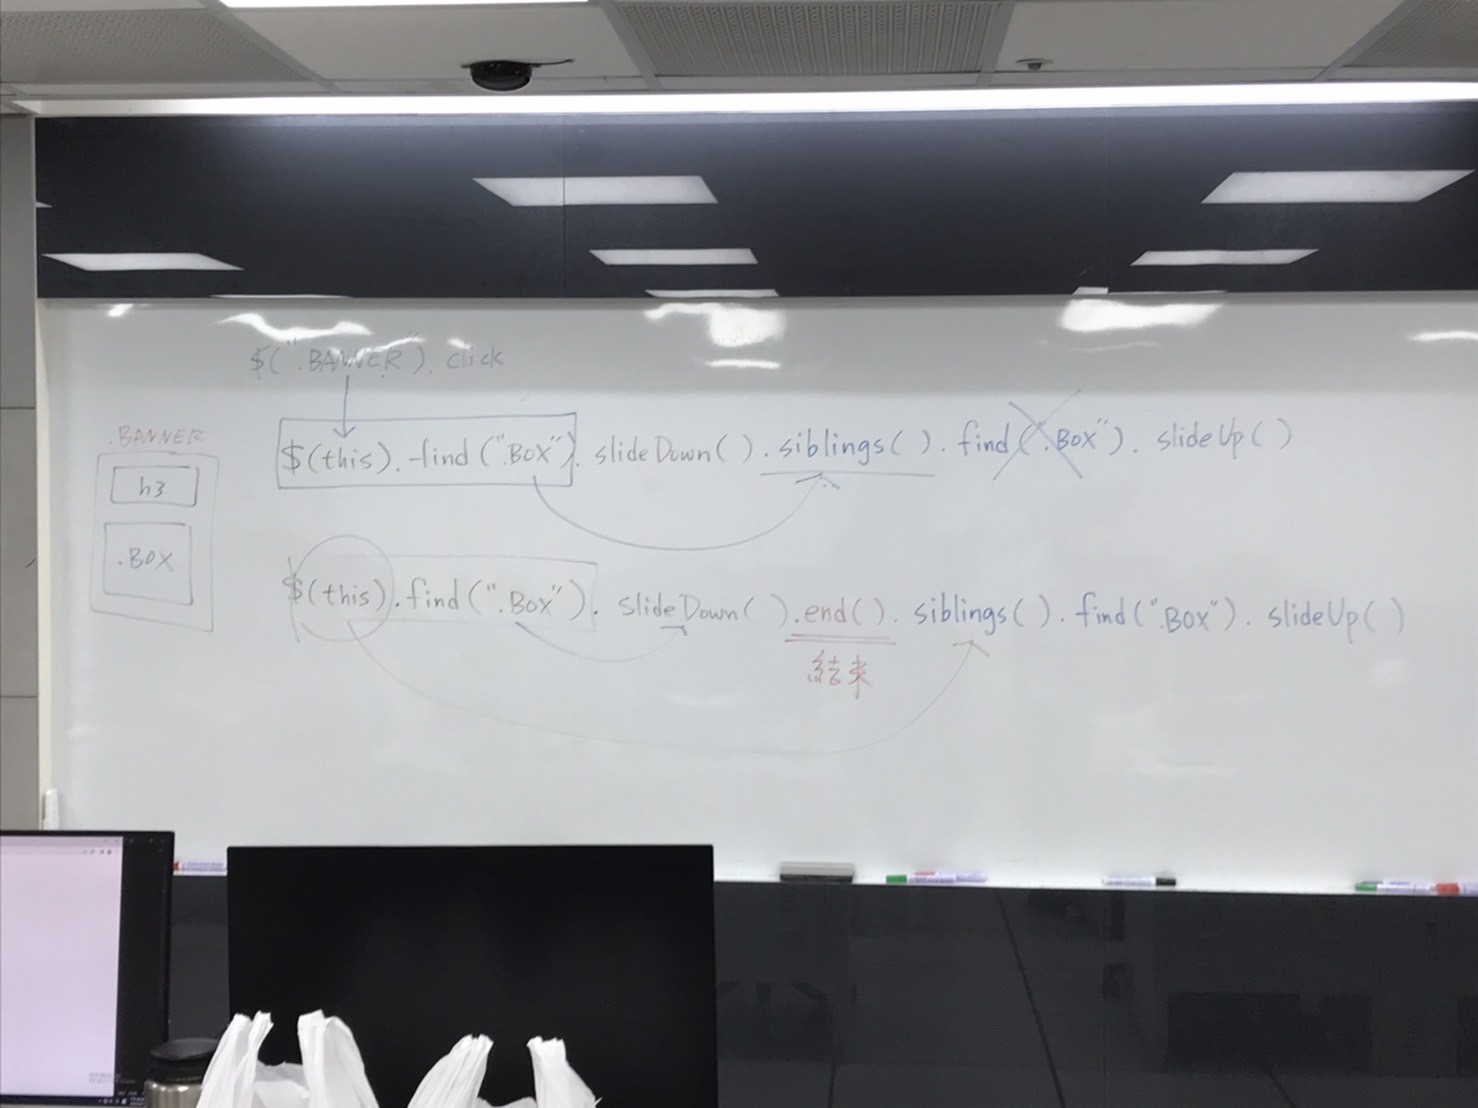 $(".BANNER").click
.BANNER
h3
.BOX
$(this).find(".BOX").slideDown().siblings().find(".BOX").slideUp()
$(this).find(".BOX").slideDown().end().siblings().find(".BOX").slideUp()
結束